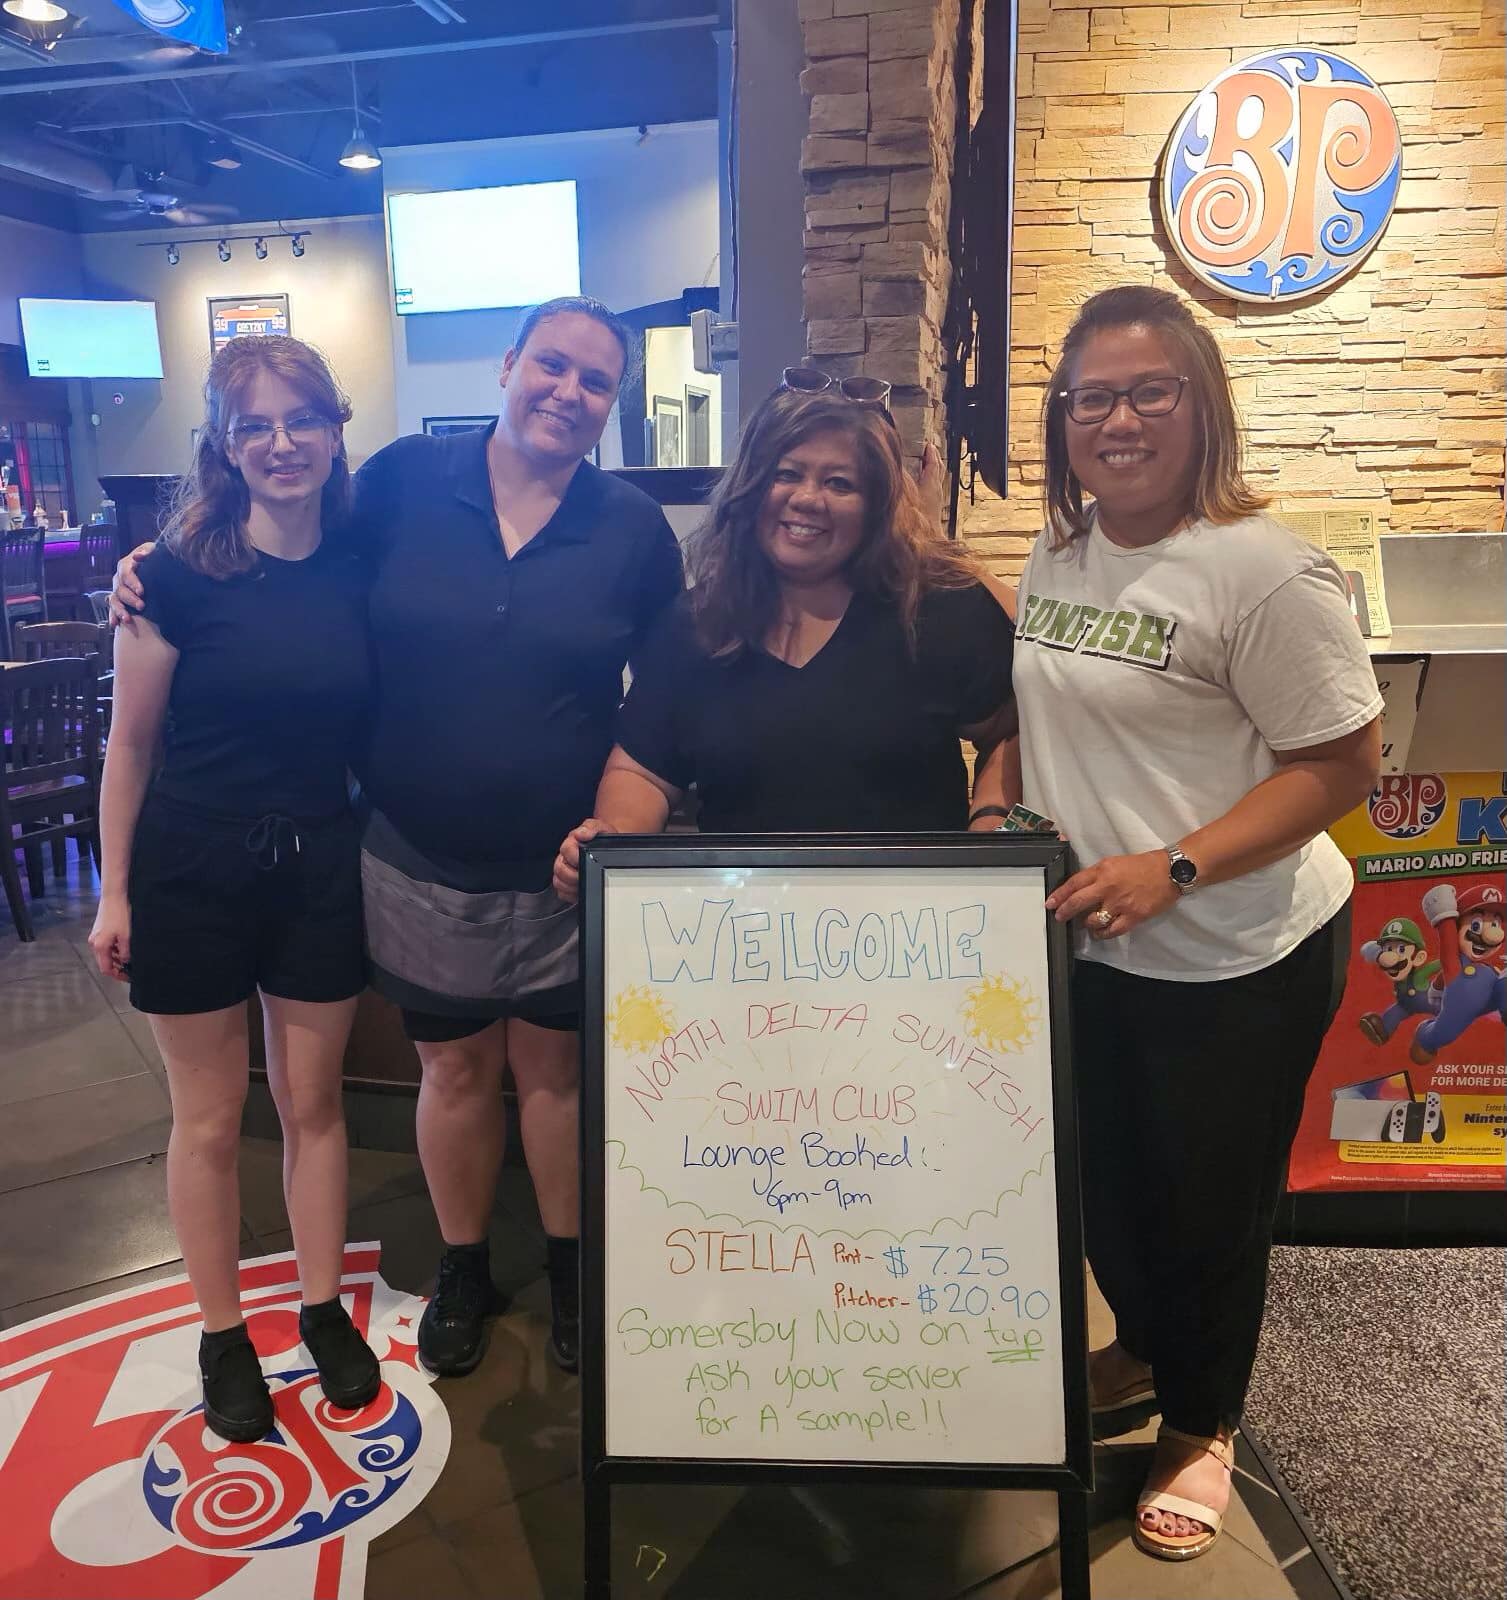 BP
99 GRETZKY 99
SUNFISH
WELCOME
NORTH DELTA SUNFISH
SWIM CLUB
Lounge Booked:
6pm-9pm
STELLA Pint- $7.25
Pitcher- $20.90
Somersby Now on tap
ASK your server
for A sample!!
BP
K
MARIO AND FRIE
ASK YOUR S
FOR MORE DE
Enter
Ninten
sy
BP